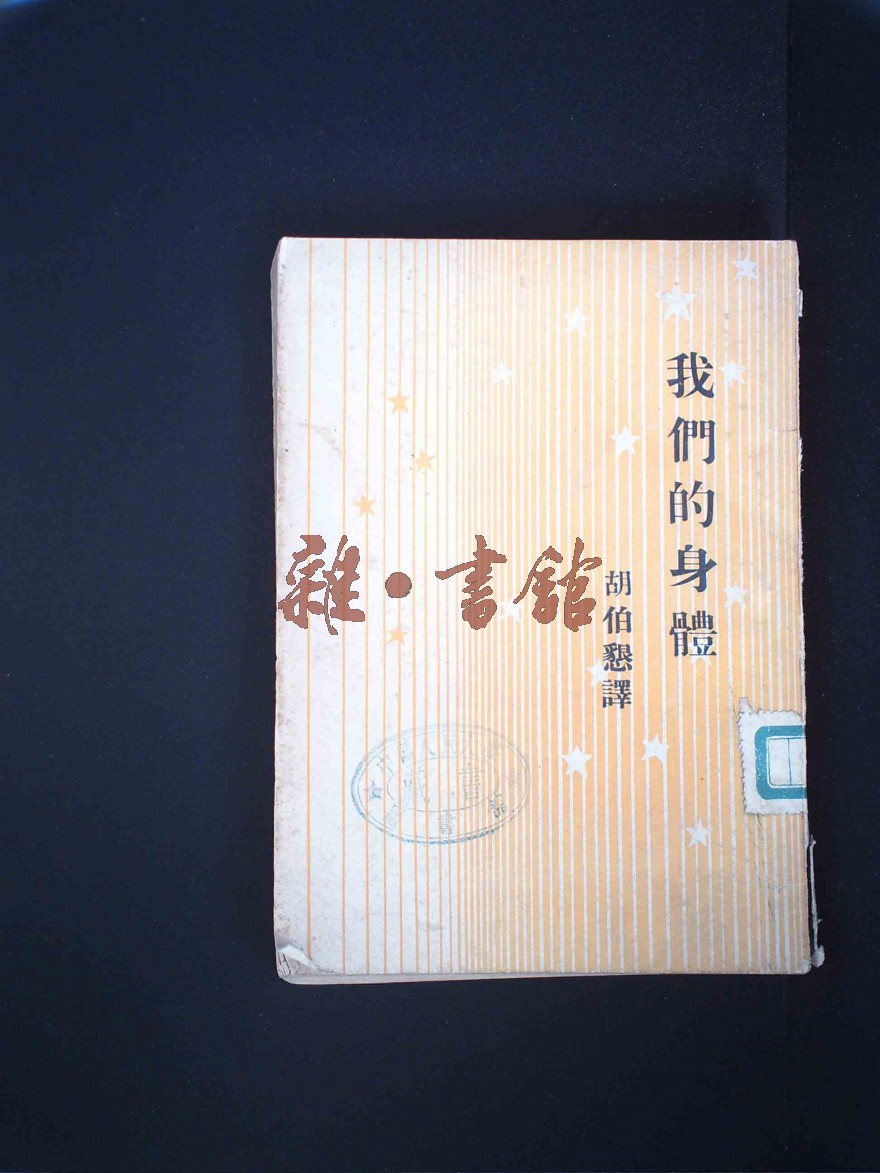 我們的身體
胡伯懇譯
雜·書館
藏書